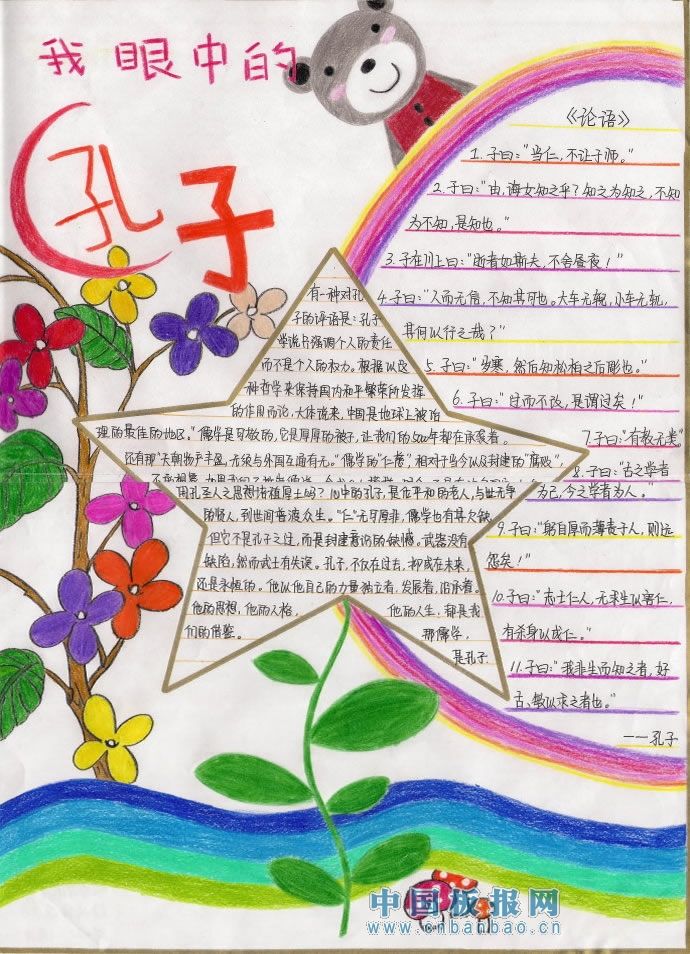 我眼中的
孔子
有一种对孔
子的评语是：孔子
学说只强调个人的责任
而不是个人的权力。根据以这
种哲学来保持国内和平繁荣所发挥
的作用而论，大体说来，中国是地球上被治
理的最佳的地区。"儒学是可敬的，它是厚厚的被子，让我们的500年都在承袭着。
还有那"天朝物产丰盈，无须与外国互通有无。"儒学的"仁慈"，相对于当今以及封建的"腐败"
用孔圣人之思想诸植厚土吗？心中的孔子，是位平和的老人，与世无争
的贤人，到世间普渡众生。"仁"无可厚非，儒学也有其欠缺
但它不是孔子之过，而是封建意识的缺憾。武器没有
缺陷，然而武士有失误。孔子，不仅在过去，抑或在未来，
还是永恒的。他以他自己的力量独立着，发展着，沿承着。
他的思想，他的人格，他的人生，都是我
们的借鉴。那儒学，
是孔子
《论语》
1.子曰："当仁，不让于师。"
2.子曰："由，诲女知之乎？知之为知之，不知
为不知，是知也。"
3.子在川上曰："逝者如斯夫，不舍昼夜！"
4.子曰："人而无信，不知其可也。大车无輗，小车无軏，
其何以行之哉？"
5.子曰："岁寒，然后知松柏之后彫也。"
6.子曰："过而不改，是谓过矣！"
7.子曰："有教无类"
8.子曰："古之学者
为己，今之学者为人。"
9.子曰："躬自厚而薄责于人，则远
怨矣！"
10.子曰："志士仁人，无求生以害仁，
有杀身以成仁。"
11.子曰："我非生而知之者，好
古、敏以求之者也。"
——孔子
中国板报网
www.cnbanbao.cn